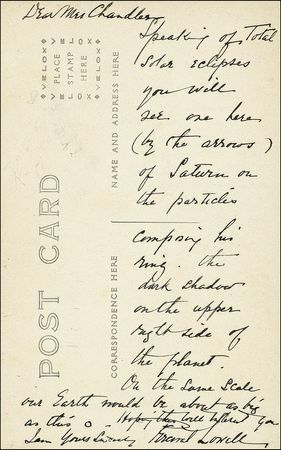 Dear Mrs Chandler
Speaking of Total
Solar eclipses
you will
see one here
(by the arrows)
of Saturn on
the particles
composing his
ring. the
dark shadow
on the upper
right side of
the planet.
On the same scale
our Earth would be about as big
as this o. Hoping this will interest you
I am Yours Sincerely Percival Lowell
POST CARD
VELOX VELOX
PLACE
STAMP
HERE
VELOX VELOX
NAME AND ADDRESS HERE
CORRESPONDENCE HERE